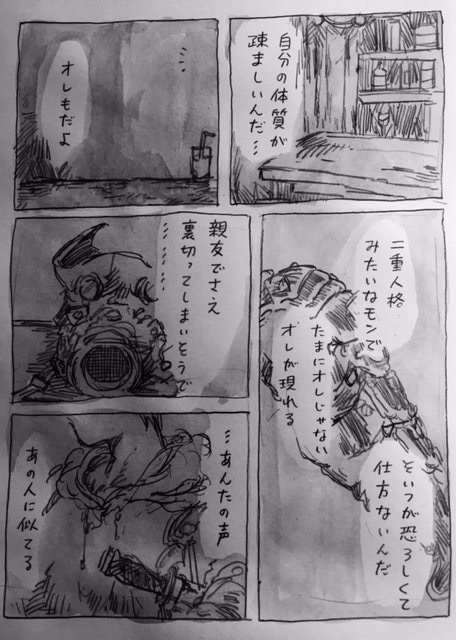 自分の体質が
疎ましいんだ…
…
オレもだよ
二重人格
みたいなモンで
たまにオレじゃない
オレが現れる
そいつが恐ろしくて
仕方ないんだ
親友でさえ
裏切ってしまいそうで
…………
…あんたの声
あの人に似てる